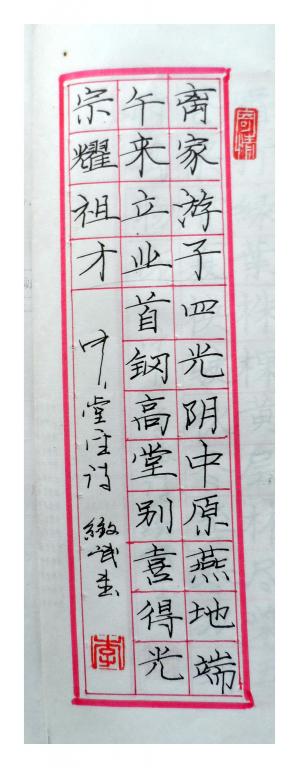 寄情
离家游子四光阴中原燕地端
午来立业首钢高堂别喜得光
宗耀祖才
堂 诗
李